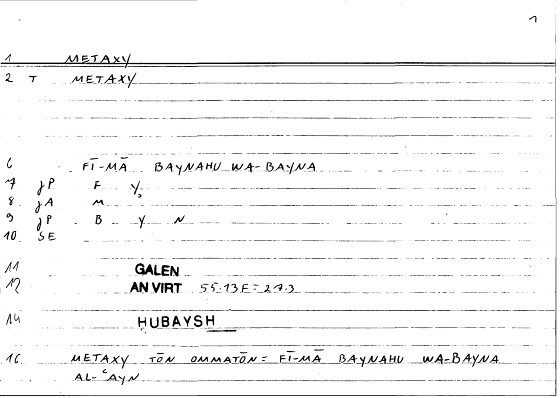 1
1 METAXY
2 T METAXY
6 FĪ-MĀ BAYNAHU WA-BAYNA
7 JP F Y
8 JA M
9 JP B Y N
10 SE
11 GALEN
12 AN VIRT 55.13F=27.3
14 HUBAYSH
16 METAXY TŌN OMMATŌN= FĪ-MĀ BAYNAHU WA-BAYNA
AL-ʿAYN